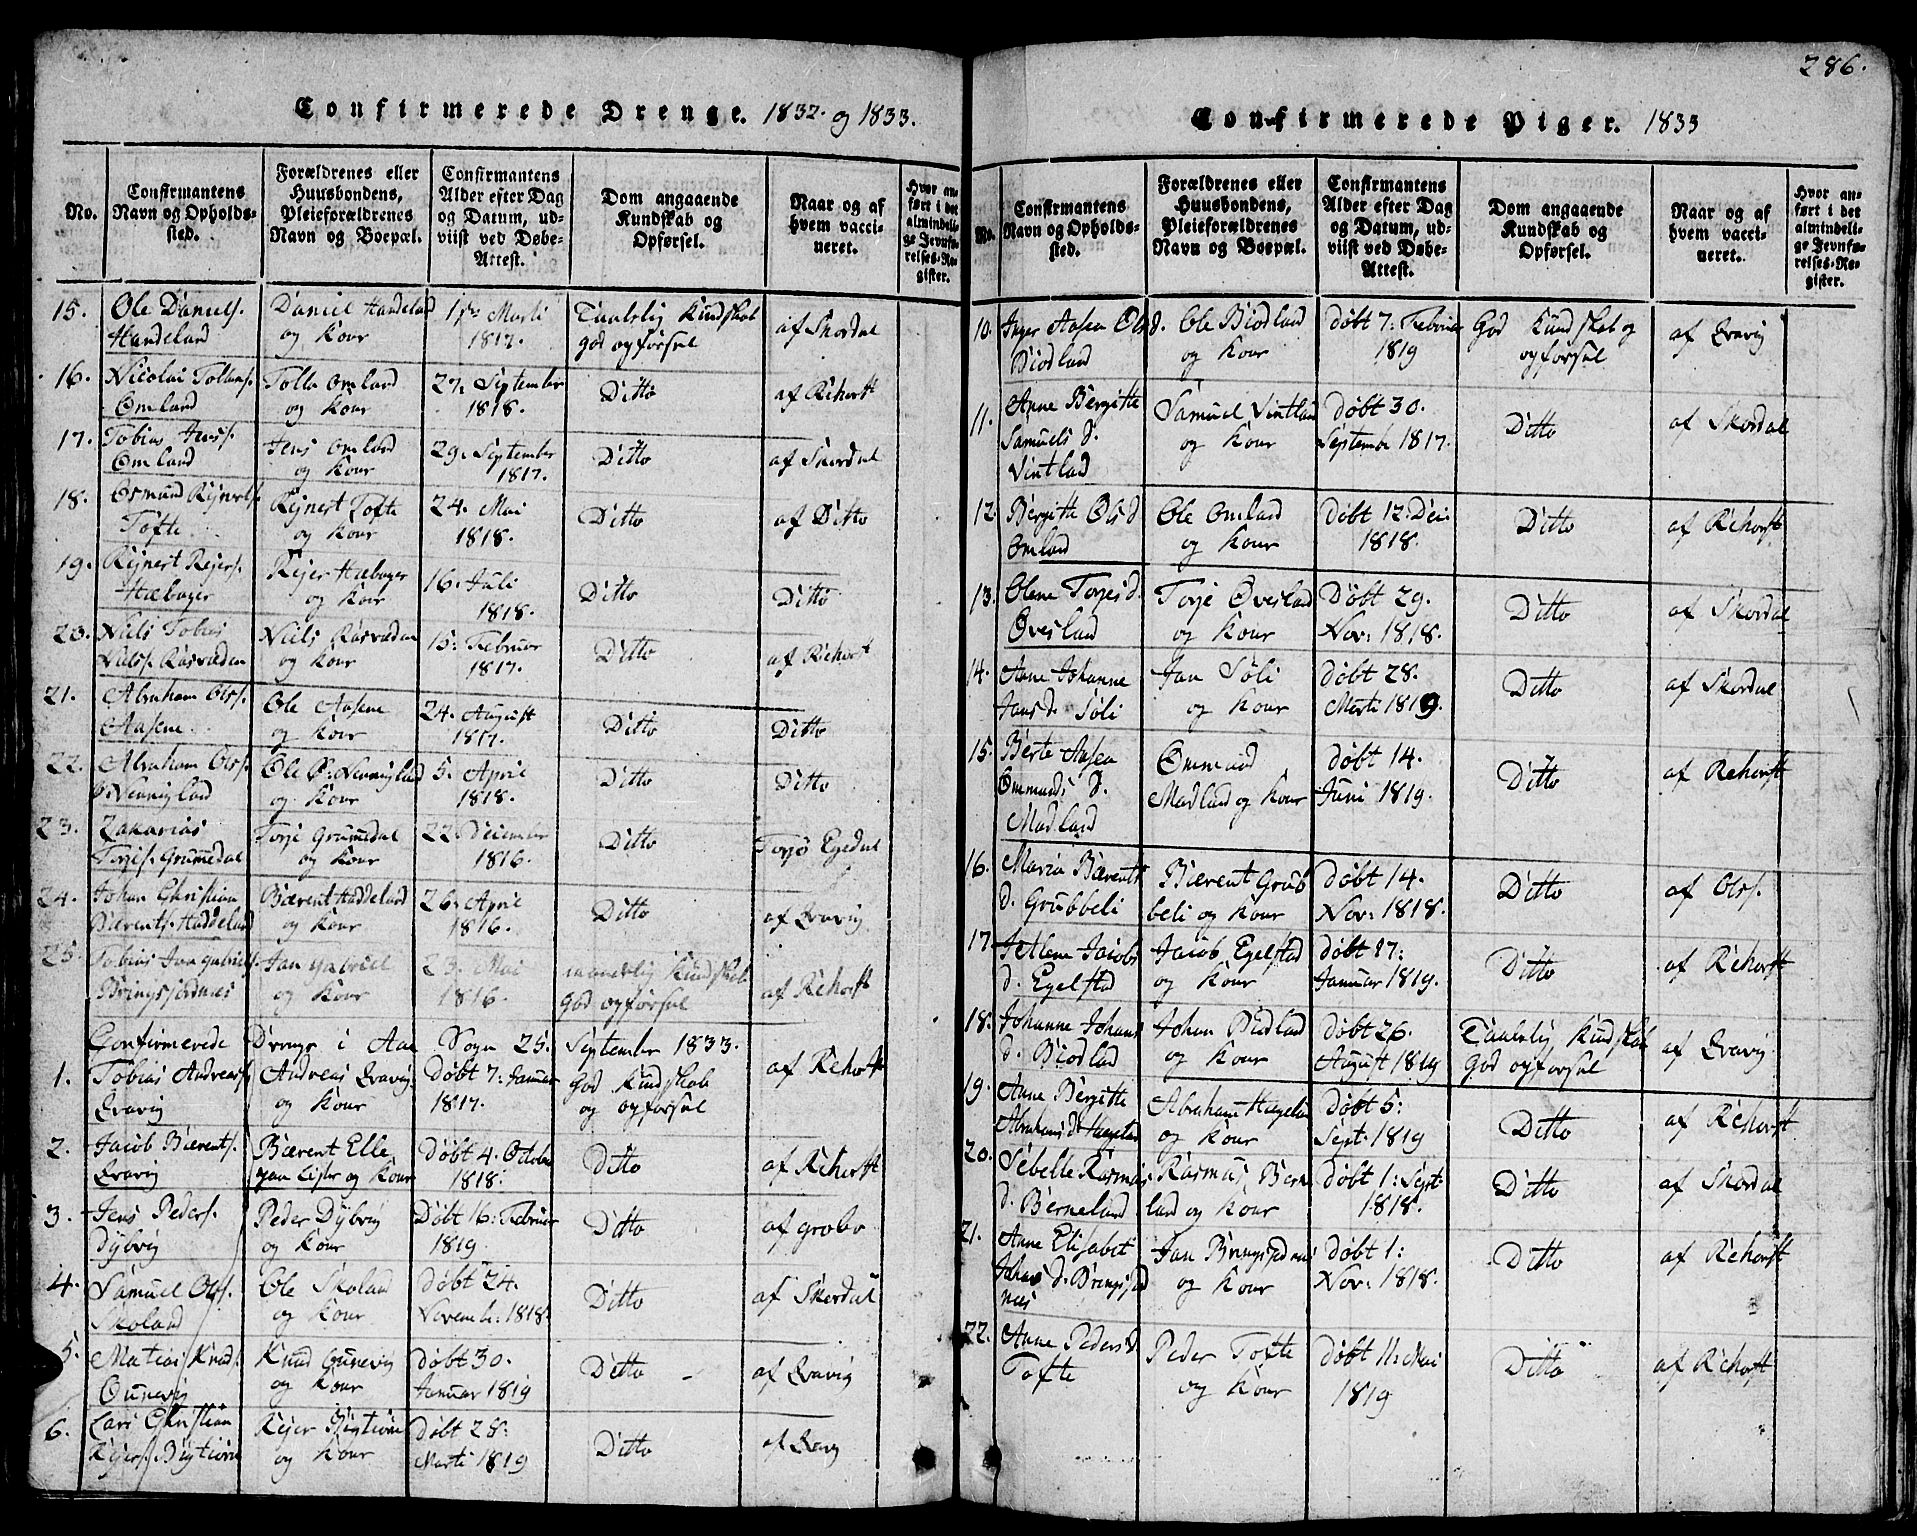 286.
Confirmerede Drenge. 1832. og 1833.
No.
Confirmantens
Navn og Opholds-
sted.
Forældrenes eller
Huusbondens,
Pleieforældrenes
Navn og Boepæl.
Confirmantens
Alder efter Dag
og Datum, ud-
viist ved Døbe-
Attest.
Dom angaaende
Kundskab og
Opførsel.
Naar og af
hvem vacci-
neret.
Hvor an-
ført i det
almindeli-
ge Jevnfø-
relses-Re-
gister.
15. Ole Daniels. Daniel Handeland Marti Taalelig Kundskab af Skordal
Handeland og Kone 1817. god opførsel
16. Nicolai Tollaks. Tolla Omland 27. September Ditto af Rehorst
Omland og Kone 1818.
17. Tobias Jens. Jens Omland 29. September Ditto af Skordal
Omland og Kone 1817.
18. Osmund Rejnerts. Rejnert Tofte 24. Mai Ditto af Ditto
Tofte og Kone 1818.
19. Rejnert Rejers. Rejer Hæbager 16. Juli Ditto Ditto
Hæbager og Kone 1818.
20. Niels Tobias Niels Røsvadan 15. Februar Ditto af Rehorst
Niels. Røsvadan og Kone 1817.
21. Abraham Ols. Ole Aasene 24. August Ditto Ditto
Aasene og Kone 1817.
22. Abraham Ols. Ole 5. April Ditto Ditto
og Kone 1818.
23. Zakarias Torje Grummedal 22. December Ditto Torjo Egedal
Torjes. Grummedal og Kone 1816.
24. Johan Christian Bærent Haddeland 26. April Ditto af Qvavig
Bærents. Haddeland og Kone 1816.
25. Tobias Jan Gabriels. Jan Gabriel 23. Mai maadelig Kundskab af Rehorst
Bringsjordnæs og Kone 1816. god opførsel
Confirmerede Drenge i Aa Sogn 25. September 1833.
1. Tobias Andreas. Andreas Qvavig Døbt 7: Januar God Kundskab af Rehorst
Qvavig og Kone 1817. og opførsel
2. Jacob Bærents. Bærent Elle Døbt 4. October Ditto af Rehorst
Qvavig og Kone 1818.
3. Jens Peders. Peder Dybvig Døbt 16: Februar Ditto af Grobo
Dybvig og Kone 1819.
4. Samuel Ols. Ole Skoland Døbt 24. Ditto af Skordal
Skoland og Kone Novemb. 1818.
5. Matias Knuds. Knud Ounevig Døbt 30. Ditto af Qvavig
Ounevig og Kone Januar 1819
6. Lars Christian Rejer Døbt 28. Ditto af
Rejers. og Kone Marti 1819
Confirmerede Piger. 1833
No.
Confirmantens
Navn og Opholds-
sted.
Forældrenes eller
Huusbondens,
Pleieforældrenes
Navn og Boepæl.
Confirmantens
Alder efter Dag
og Datum, ud-
viist ved Døbe-
Attest.
Dom angaaende
Kundskab og
Opførsel.
Naar og af
hvem vacci-
neret.
Hvor an-
ført i det
almindeli-
ge Jevnfø-
relses-Re-
gister.
10. Inger Aasea Olsd. Ole Biodland døbt 7: Februar God Kundskab og af Qvavig
Biodland og Kone 1819 opførsel
11. Anne Bergitte Samuel Vintland døbt 30. Ditto af Skordal
Samuels d. og Kone September 1817.
Vintland
12. Bergitte Olsd. Ole Omland Døbt 12: Dec. Ditto af Rehorst
Omland og Kone 1818.
13. Olene Torjesd. Torje Øvesland Døbt 29. Ditto af Skordal
Øvesland og Kone Nov: 1818.
14. Anne Johanne Jan Søli døbt 28. Ditto af Skordal
Jansd. Søli og Kone Marti 1819.
15. Berte Aasea Ommund døbt 14. Ditto af Rehorst
Ommunds d. Madland og Kone Juni 1819.
Madland
16. Maria Bærents Bærent Grub døbt 14. Ditto af Ols.
d. Grubbeli beli og Kone Nov: 1818.
17. Jacobs Jacob Egelstad døbt 17: Ditto af Rehorst
d. Egelstad og Kone Januar 1819.
18. Johanne Johans Johan Biodland døbt 26. Taalelig Kundskab af Qvavig
d. Biodland og Kone August 1819 God opførsel
19. Anne Bergitte Abraham døbt 5: Ditto af Rehorst
Abrahams d. og Kone Sept. 1819
20. Sebelle Rasmus Rasmus Berne døbt 1: Sept. Ditto af Skordal
d. Berneland land og Kone 1818.
21. Anne Elisabet Jan døbt 1: Ditto af Rehorst
og Kone Nov: 1818.
næs
22. Anne Pedersd. Peder Tofte døbt 11: Mai Ditto af Rehorst
Tofte og Kone 1819